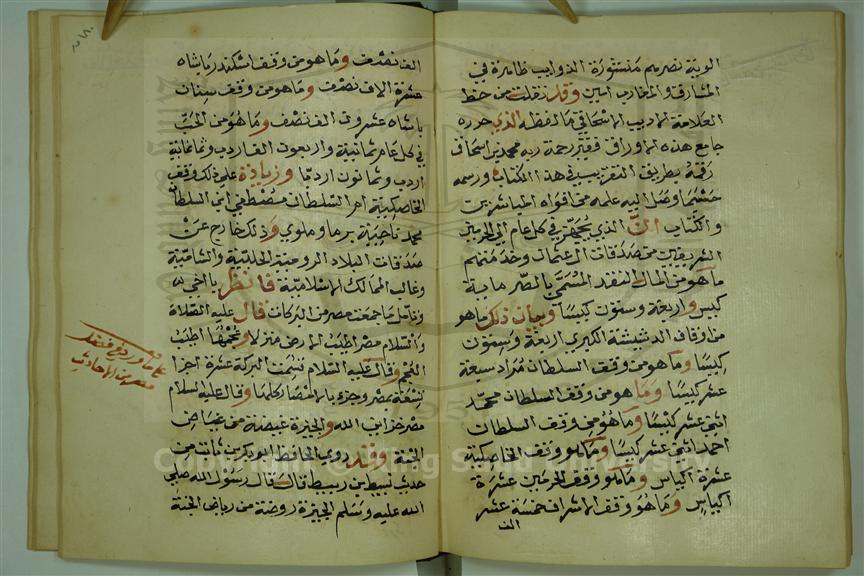 الوية نصرهم منشورة الذوايب ظاهرة في
المشارق والمغارب امين وقد نقلت من خط
العلامة الاديب الاسحاقي ما لفظه الذي حرره
جامع هذه الاوراق فقير رحمة ربه محمد بن اسحاق
رقمه بطريق التقريب في هذا الكتاب ورسمه
حسبما وصل اليه علمه من افواه المباشرين
والكتاب ان الذي يجهز في كل عام الى الحرمين
الشريفين من صدقات ال عثمان وخدمتهم
ما هو من المال النقد المسمى بالصر ماية
كيس واربعة وستون كيسا وبيان ذلك ما هو
من اوقاف الدشيشة الكبرى اربعة وستون
كيسا وما هو من وقف السلطان مراد سبعة
عشر كيسا وما هو من وقف السلطان محمد
اثنى عشر كيسا وما هو من وقف السلطان
احمد اثنى عشر كيسا وما هو وقف الخاصكية
عشرة اكياس وما هو وقف الحرمين عشرة
اكياس وما هو وقف الاشراف خمسة عشر
الف
الف نصف وما هو من وقف اسكندر باشاه
عشرة الاف نصف وما هو من وقف سنان
باشاه عشرون الف نصف وما هو من الحب
في كل عام ثمانية واربعون الف اردب وثمانماية
اردب وثمانون اردبا وزيادة على ذلك وقف
الخاصكية ام السلطان مصطفى ابن السلطان
محمد ناحية برما وملوي وذلك خارج عن
صدقات البلاد الرومية الحلبية والشامية
وغالب الممالك الاسلامية فانظر يا اخي
وتامل ما جمعت مصر من البركات قال عليه الصلاة
والسلام مصر اطيب الارض منزلا وعجمها اطيب
العجم وقال عليه السلام قسمت البركة عشرة اجزا
تسعة بمصر وجزء بالامصار كلها وقال عليه السلام
مصر خزاين الله والجيزة غيضة من غياض
الجنة وقد روي الحافظ ابو بكر بن ثابت من
حديث نبيط بن شريط قال قال رسول الله صلى
الله عليه وسلم الجيزة روضة من رياض الجنة
مصر من الاحاديث